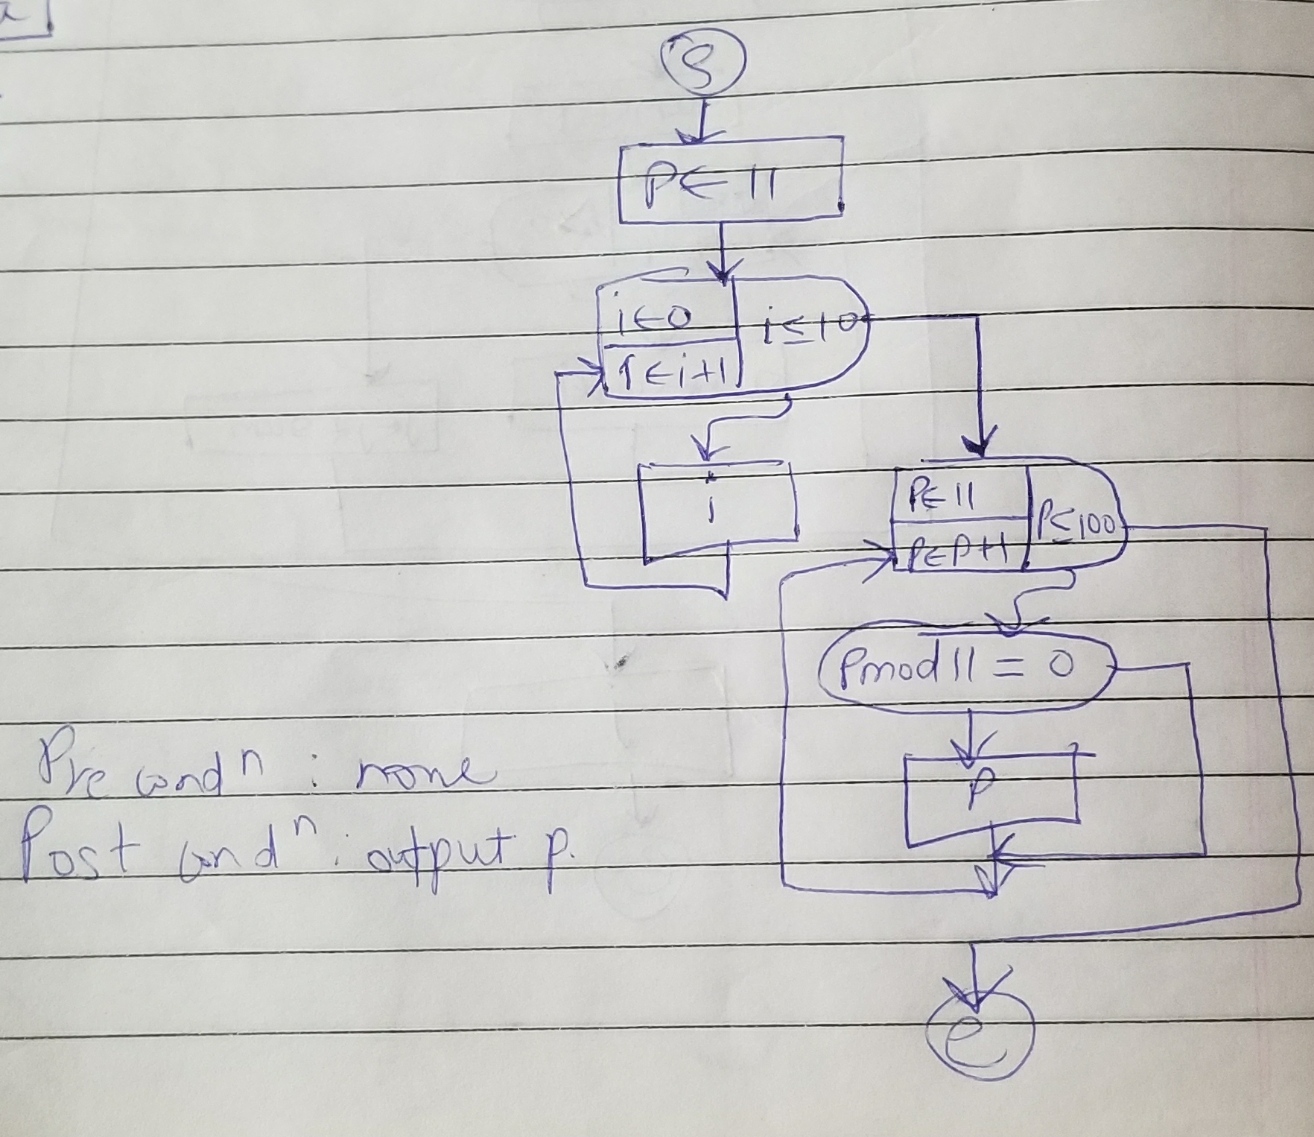 S
P ← 11
i ← 0
i ≤ 10
i ← i+1
i
P ← 11
P ≤ 100
P ← P+1
Pmod 11 = 0
P
Pre condⁿ : none
Post condⁿ : output p.
e